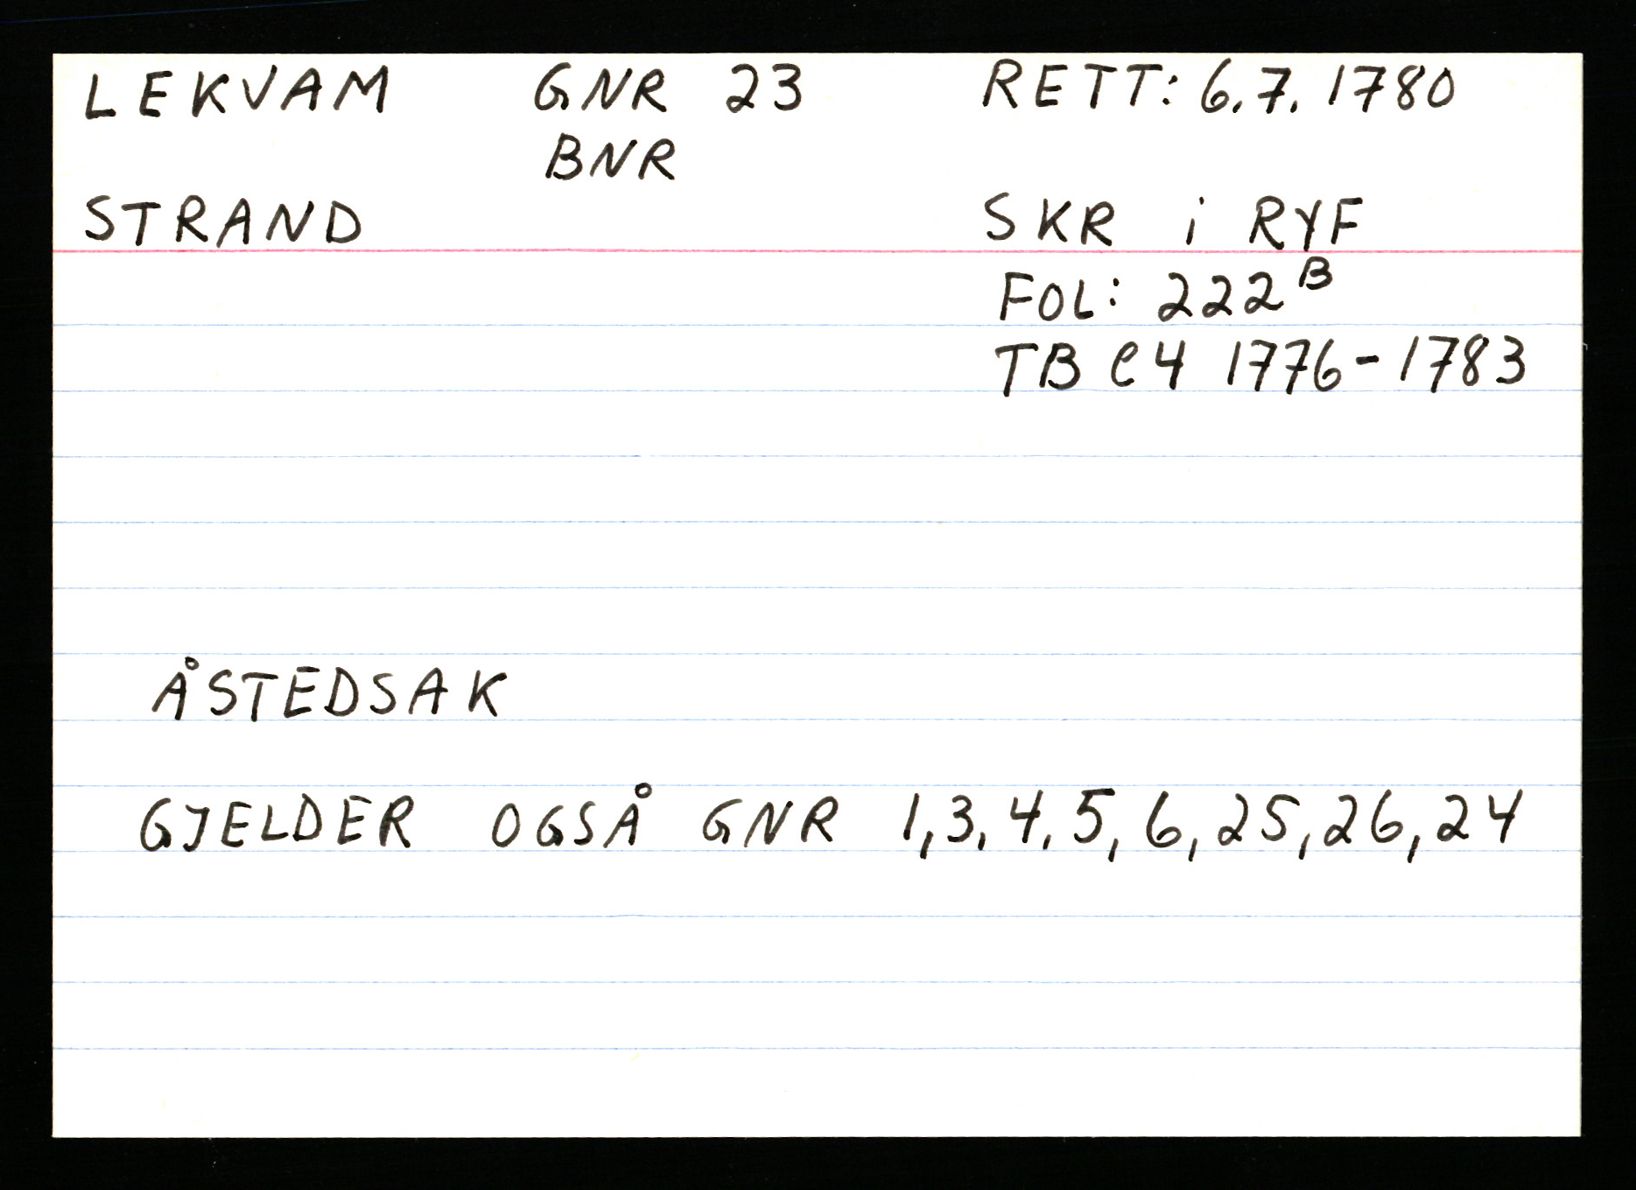 LEKVAM GNR 23 RETT: 6.7.1780
BNR
STRAND SKR i RYF
FOL: 222B
TB C4 1776-1783
ÅSTEDSAK
GJELDER OGSÅ GNR 1,3,4,5,6,25,26,24